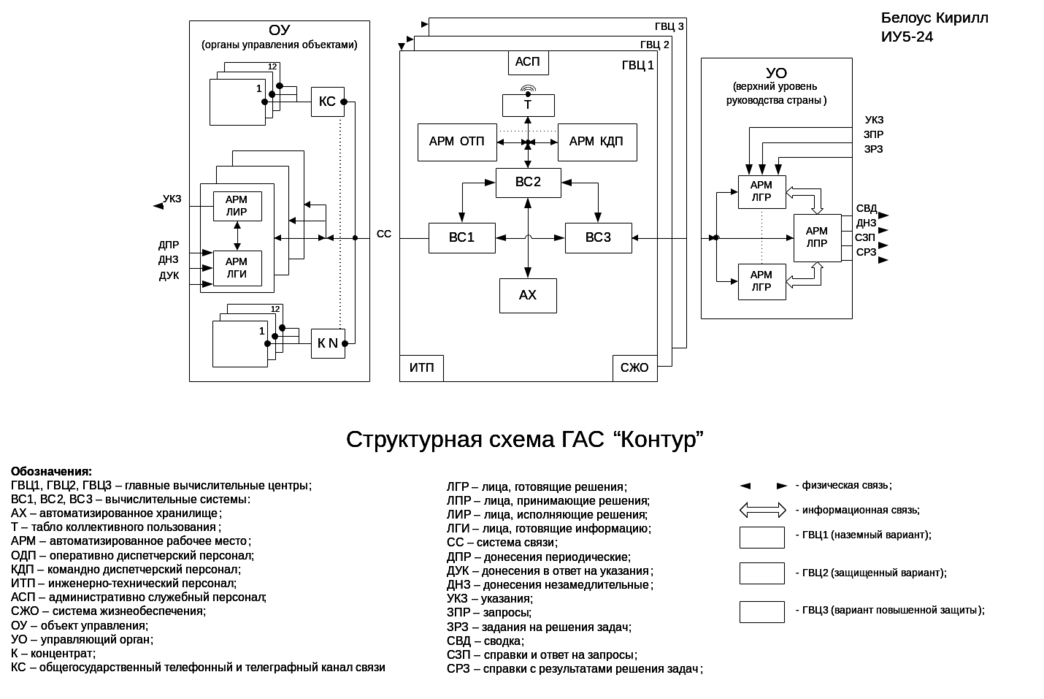 Белоус Кирилл
ИУ5-24
ОУ
(органы управления объектами)
12
1
КС
УКЗ
АРМ
ЛИР
ДПР
ДНЗ
ДУК
АРМ
ЛГИ
12
1
К N
СС
ГВЦ 3
ГВЦ 2
ГВЦ 1
АСП
Т
АРМ ОТП
АРМ КДП
ВС2
ВС1
ВС3
АХ
ИТП
СЖО
УО
(верхний уровень
руководства страны )
УКЗ
ЗПР
ЗРЗ
АРМ
ЛГР
АРМ
ЛПР
АРМ
ЛГР
СВД
ДНЗ
СЗП
СРЗ
Структурная схема ГАС “Контур”
Обозначения:
ГВЦ1, ГВЦ2, ГВЦ3 – главные вычислительные центры;
ВС1, ВС2, ВС3 – вычислительные системы:
АХ – автоматизированное хранилище ;
Т – табло коллективного пользования ;
АРМ – автоматизированное рабочее место ;
ОДП – оперативно диспетчерский персонал;
КДП – командно диспетчерский персонал;
ИТП – инженерно-технический персонал;
АСП – административно служебный персонал;
СЖО – система жизнеобеспечения;
ОУ – объект управления;
УО – управляющий орган;
К – концентрат;
КС – общегосударственный телефонный и телеграфный канал связи
ЛГР – лица, готовящие решения;
ЛПР – лица, принимающие решения;
ЛИР – лица, исполняющие решения;
ЛГИ – лица, готовящие информацию;
СС – система связи;
ДПР – донесения периодические;
ДУК – донесения в ответ на указания ;
ДНЗ – донесения незамедлительные ;
УКЗ – указания;
ЗПР – запросы;
ЗРЗ – задания на решения задач;
СВД – сводка;
СЗП – справки и ответ на запросы;
СРЗ – справки с результатами решения задач ;
- физическая связь;
- информационная связь;
- ГВЦ1 (наземный вариант);
- ГВЦ2 (защищенный вариант);
- ГВЦ3 (вариант повышенной защиты);